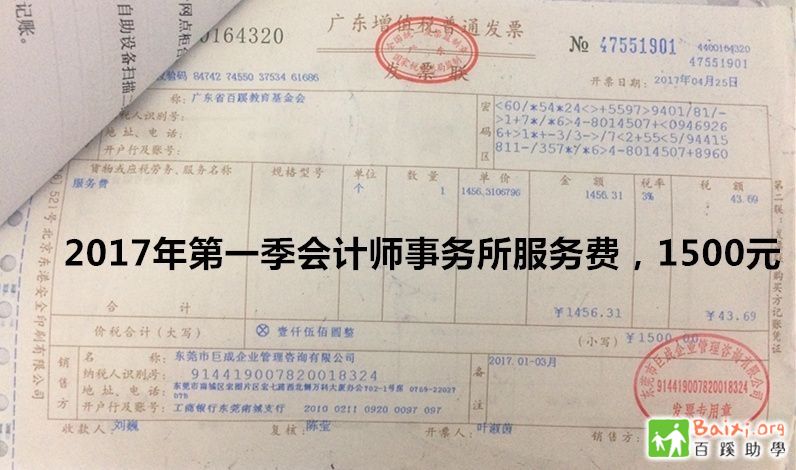 记账。
自助设备扫描二
网点柜台
00164320
广东增值税普通发票
发票联
№ 47551901
4400164320
47551901
开票日期：2017年04月25日
校验码 84742 74550 37534 61686
称：广东省百蹊教育基金会
纳税人识别号：
地址、电话：
开户行及账号：
密码区
<60/*54*24<>+5597>9401/81/-
>1+7/*/6>4-8014507+<0946926
6+>1*+-3/3->/7<2+55<5/94415
811-/357*/*6>4-8014507+8960
货物或应税劳务、服务名称 规格型号 单位 数量 单价 金额 税率 税额
服务费 个 1 1456.3106796 1456.31 3% 43.69
2017年第一季会计师事务所服务费，1500元
合计 ￥1456.31 ￥43.69
价税合计（大写） ⊗ 壹仟伍佰圆整 （小写）￥1500.00
销售方
名称：东莞市巨成企业管理咨询有限公司
纳税人识别号：914419007820018324
地址、电话：
开户行及账号：工商银行东莞南城支行 2010 0211 0920 0097 097
备注
2017.01-03月
收款人：刘巍 复核：陈莹 开票人：叶淑茵 销售方：
东莞市巨成企业管理咨询有限公司
914419007820018324
发票专用章
521号北京东港安全印刷有限公司
第二联：发票联 购买方记账凭证
Baixi.org
百蹊助學